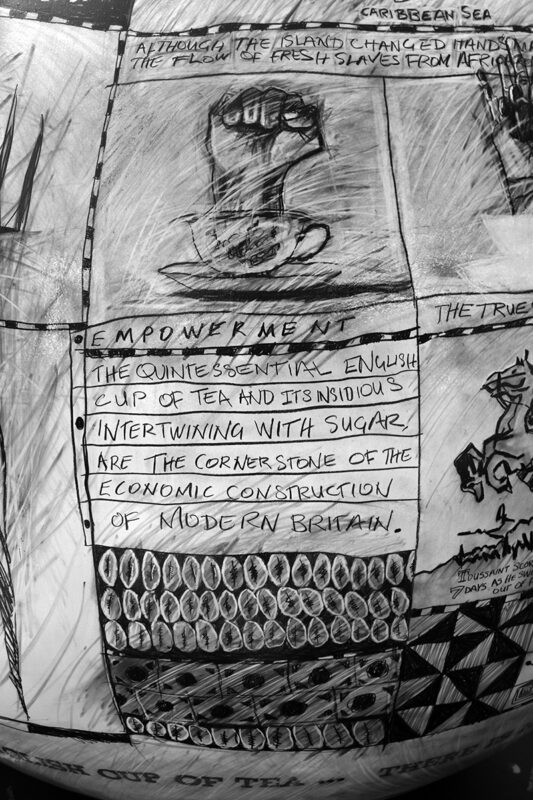 CARIBBEAN SEA
ALTHOUGH THE ISLAND CHANGED HANDS
THE FLOW OF FRESH SLAVES FROM
EMPOWERMENT
THE TRUE
THE QUINTESSENTIAL ENGLISH
CUP OF TEA AND ITS INSIDIOUS
INTERTWINING WITH SUGAR,
ARE THE CORNERSTONE OF THE
ECONOMIC CONSTRUCTION
OF MODERN BRITAIN.
TOUSSAINT
7 DAYS AS HE
OUT OF
CUP OF TEA ... THERE